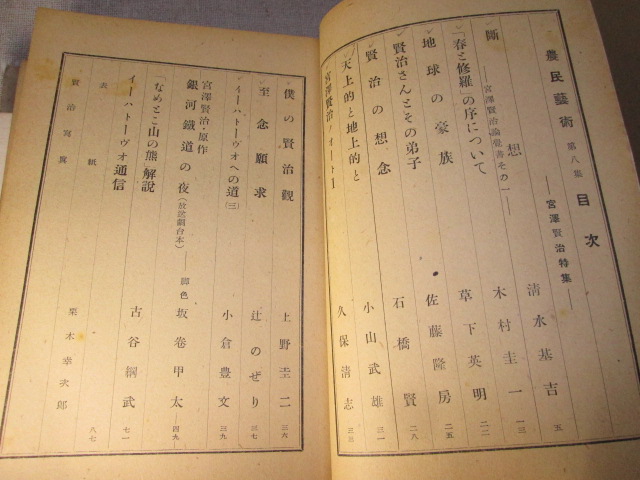 農民藝術 第八集 目次
――宮澤賢治特集――
清水基吉 五
斷想 木村圭一 一三
――宮澤賢治論覺書その一――
「春と修羅」の序について 草下英明 二二
地球の豪族 佐藤隆房 二五
賢治さんとその弟子 石橋賢 二八
賢治の想念 小山武雄 三一
天上的と地上的と 久保清志 三三
宮澤賢治ノオト
僕の賢治觀 上野圭二 三六
至念願求 辻のぜり 三七
イーハトーヴオへの道(三) 小倉豊文 三九
宮澤賢治・原作
銀河鐵道の夜(放送劇台本)――脚色 坂巻甲太 四九
「なめとこ山の熊」解說 古谷綱武 七一
イーハトーヴオ通信 八七
表紙 栗木幸次郎
賢治寫眞